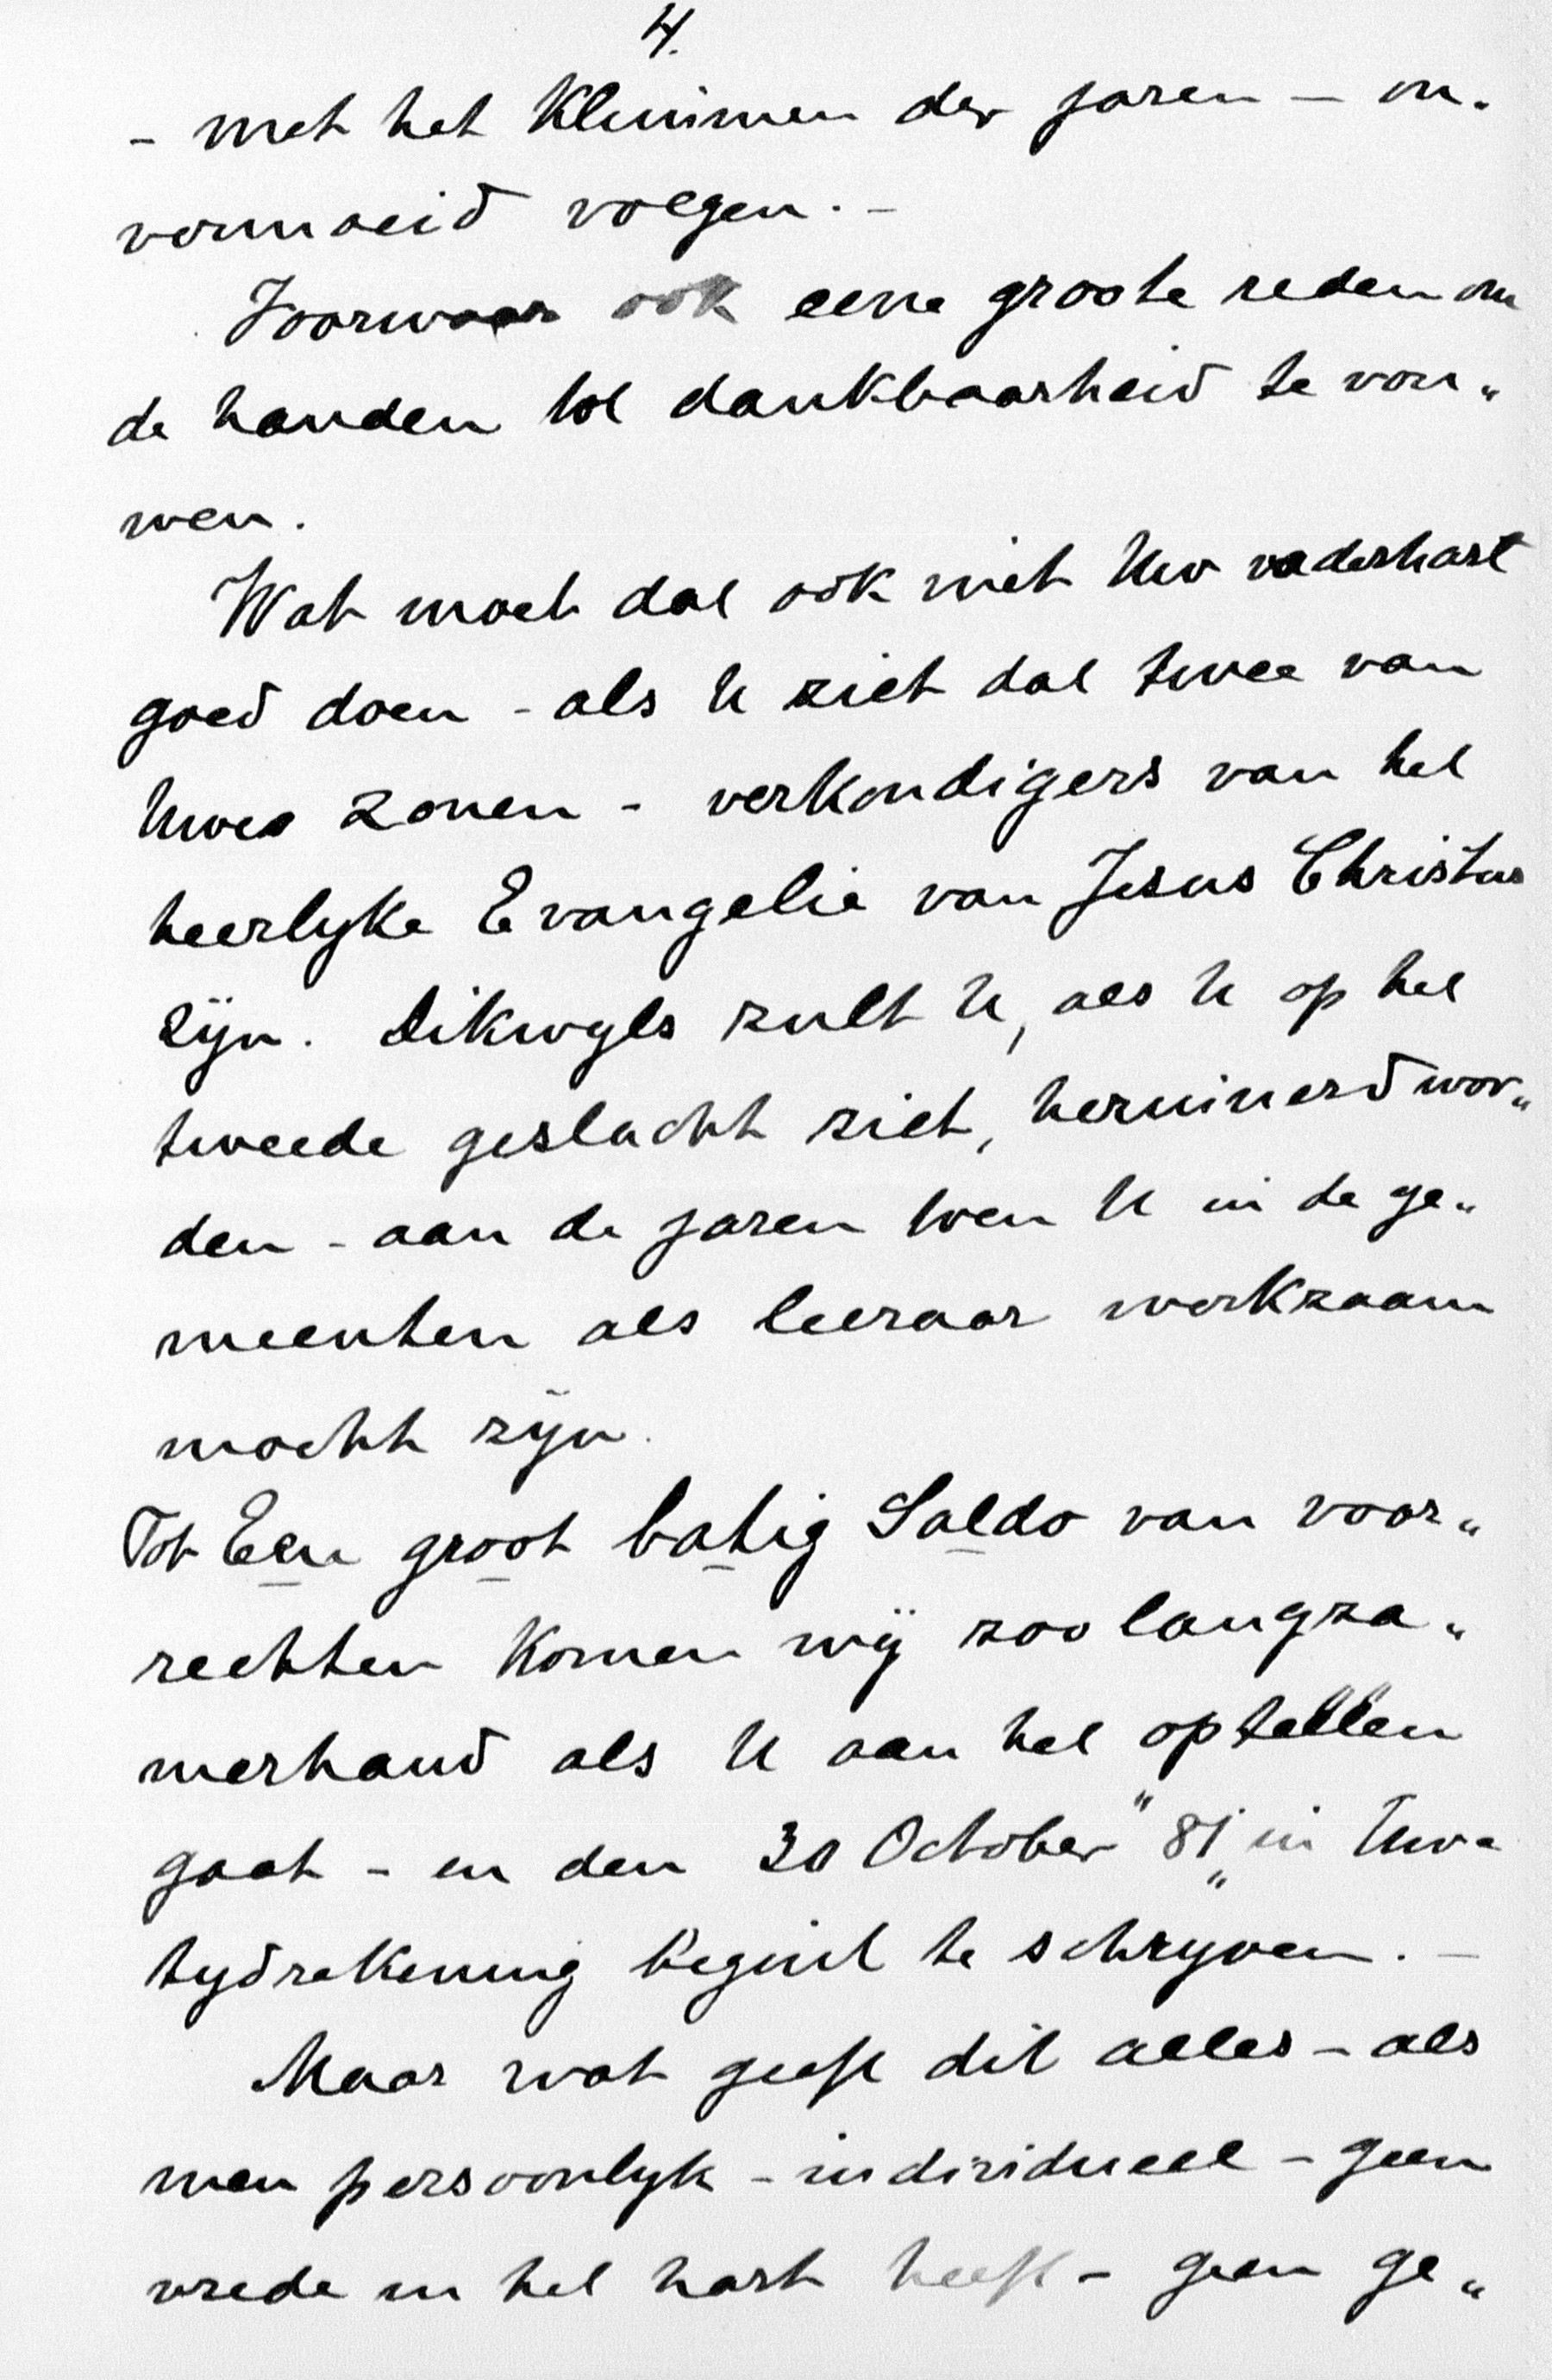 4.
- met het Klimmen der jaren - on.
vermoeid volgen. -
Voorwaar ook eene groote reden om
de handen tot dankbaarheid te vou„
wen.
Wat moet dat ook niet Uw vaderhart
goed doen - als U ziet dat twee van
Uwe zonen - verkondigers van het
heerlyke Evangelie van Jesus Christus
zijn. Dikwyls zult U, als U op het
tweede geslacht ziet, herinnerd wor„
den - aan de jaren toen U in de ge„
meenten als leeraar werkzaam
mocht zijn.
Tot Een groot batig Saldo van voor„
rechten Komen wij zoo langza„
merhand als U aan het optellen
gaat - en den 30 October "81„ in Uwe
tydrekening begint te schryven. -
Maar wat geeft dit alles - als
men persoonlyk - individueel - geen
vrede in het hart heeft - geen ge„